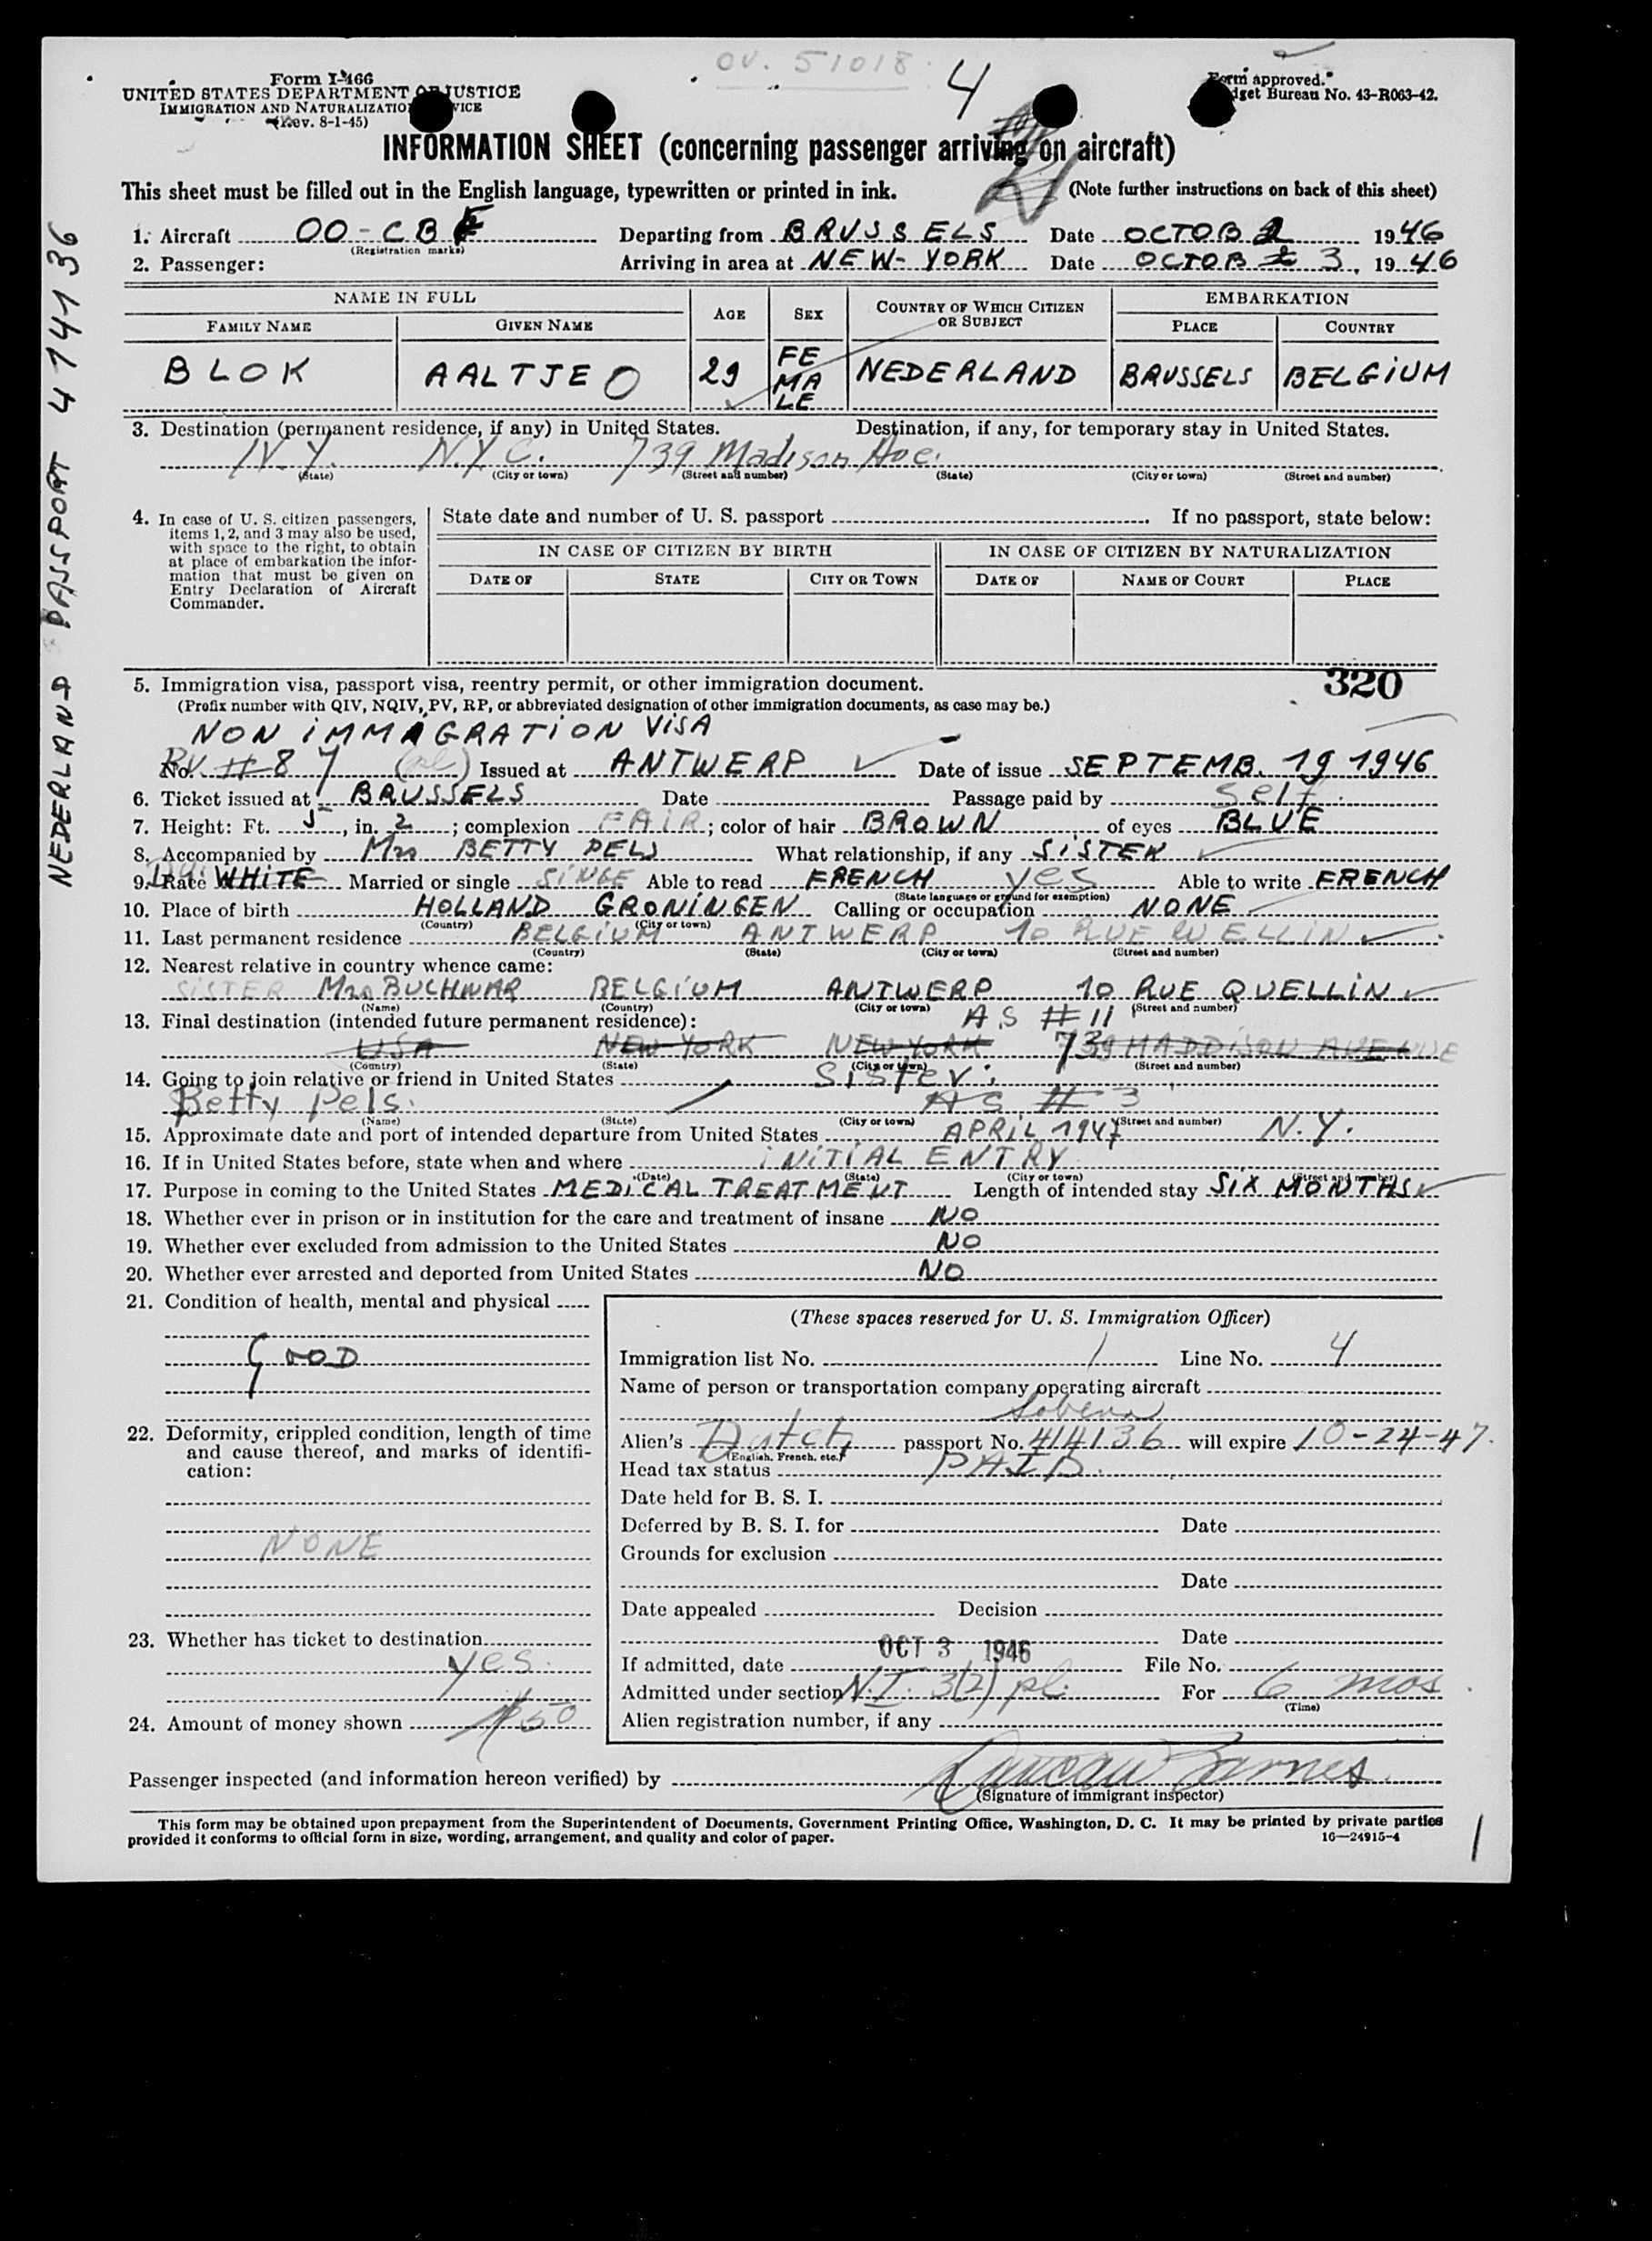 OV. 51018
4
Form I-466
UNITED STATES DEPARTMENT OF JUSTICE
IMMIGRATION AND NATURALIZATION SERVICE
(Rev. 8-1-45)
Form approved.
Budget Bureau No. 43-R063-42.
INFORMATION SHEET (concerning passenger arriving on aircraft)
This sheet must be filled out in the English language, typewritten or printed in ink. (Note further instructions on back of this sheet)
1. Aircraft OO-CBE Departing from BRUSSELS Date OCTOB 2 1946
(Registration marks)
2. Passenger: Arriving in area at NEW-YORK Date OCTOB 3, 1946
NAME IN FULL AGE SEX COUNTRY OF WHICH CITIZEN OR SUBJECT EMBARKATION
FAMILY NAME GIVEN NAME PLACE COUNTRY
BLOK AALTJE O 29 FEMALE NEDERLAND BRUSSELS BELGIUM
3. Destination (permanent residence, if any) in United States. Destination, if any, for temporary stay in United States.
N.Y. N.Y.C. 739 Madison Ave.
(State) (City or town) (Street and number) (State) (City or town) (Street and number)
4. In case of U. S. citizen passengers, items 1, 2, and 3 may also be used, with space to the right, to obtain at place of embarkation the information that must be given on Entry Declaration of Aircraft Commander.
State date and number of U. S. passport If no passport, state below:
IN CASE OF CITIZEN BY BIRTH IN CASE OF CITIZEN BY NATURALIZATION
DATE OF STATE CITY OR TOWN DATE OF NAME OF COURT PLACE
320
5. Immigration visa, passport visa, reentry permit, or other immigration document.
(Prefix number with QIV, NQIV, PV, RP, or abbreviated designation of other immigration documents, as case may be.)
NON IMMAGRATION VISA
No. PV #87 Issued at ANTWERP Date of issue SEPTEMB. 19 1946
6. Ticket issued at BRUSSELS Date Passage paid by Self
7. Height: Ft. 5, in. 2; complexion FAIR; color of hair BROWN of eyes BLUE
8. Accompanied by Mrs BETTY PELS What relationship, if any SISTER
9. Race WHITE Married or single SINGE Able to read FRENCH yes Able to write FRENCH
(State language or ground for exemption)
10. Place of birth HOLLAND GRONINGEN Calling or occupation NONE
(Country) (City or town)
11. Last permanent residence BELGIUM ANTWERP 10 RUE QUELLIN
(Country) (State) (City or town) (Street and number)
12. Nearest relative in country whence came:
SISTER Mrs BUCHNAR BELGIUM ANTWERP 10 RUE QUELLIN
(Name) (Country) (City or town) (Street and number)
13. Final destination (intended future permanent residence): AS #11
USA NEW YORK NEW YORK 739 MADDISON AVENUE
(Country) (State) (City or town) (Street and number)
14. Going to join relative or friend in United States Sister:
Betty Pels. AS #3
(Name) (State) (City or town) (Street and number)
15. Approximate date and port of intended departure from United States APRIL 1947 N.Y.
16. If in United States before, state when and where INITIAL ENTRY
(Date) (State) (City or town) (Street and number)
17. Purpose in coming to the United States MEDICAL TREATMENT Length of intended stay SIX MONTHS
18. Whether ever in prison or in institution for the care and treatment of insane NO
19. Whether ever excluded from admission to the United States NO
20. Whether ever arrested and deported from United States NO
21. Condition of health, mental and physical
GOOD
22. Deformity, crippled condition, length of time and cause thereof, and marks of identification:
NONE
23. Whether has ticket to destination
yes.
24. Amount of money shown $50
(These spaces reserved for U. S. Immigration Officer)
Immigration list No. 1 Line No. 4
Name of person or transportation company operating aircraft
Sabena
Alien's Dutch passport No. 414136 will expire 10-24-47.
(English, French, etc.)
Head tax status PAID.
Date held for B. S. I.
Deferred by B. S. I. for Date
Grounds for exclusion
Date
Date appealed Decision
Date
If admitted, date OCT 3 1946 File No.
Admitted under section N.I. 3(2) pl. For 6 mos
(Time)
Alien registration number, if any
Passenger inspected (and information hereon verified) by Duncan Barnes
(Signature of immigrant inspector)
This form may be obtained upon prepayment from the Superintendent of Documents, Government Printing Office, Washington, D. C. It may be printed by private parties
provided it conforms to official form in size, wording, arrangement, and quality and color of paper. 16—24915-4
1
NEDERLAND PASSPORT 4174136